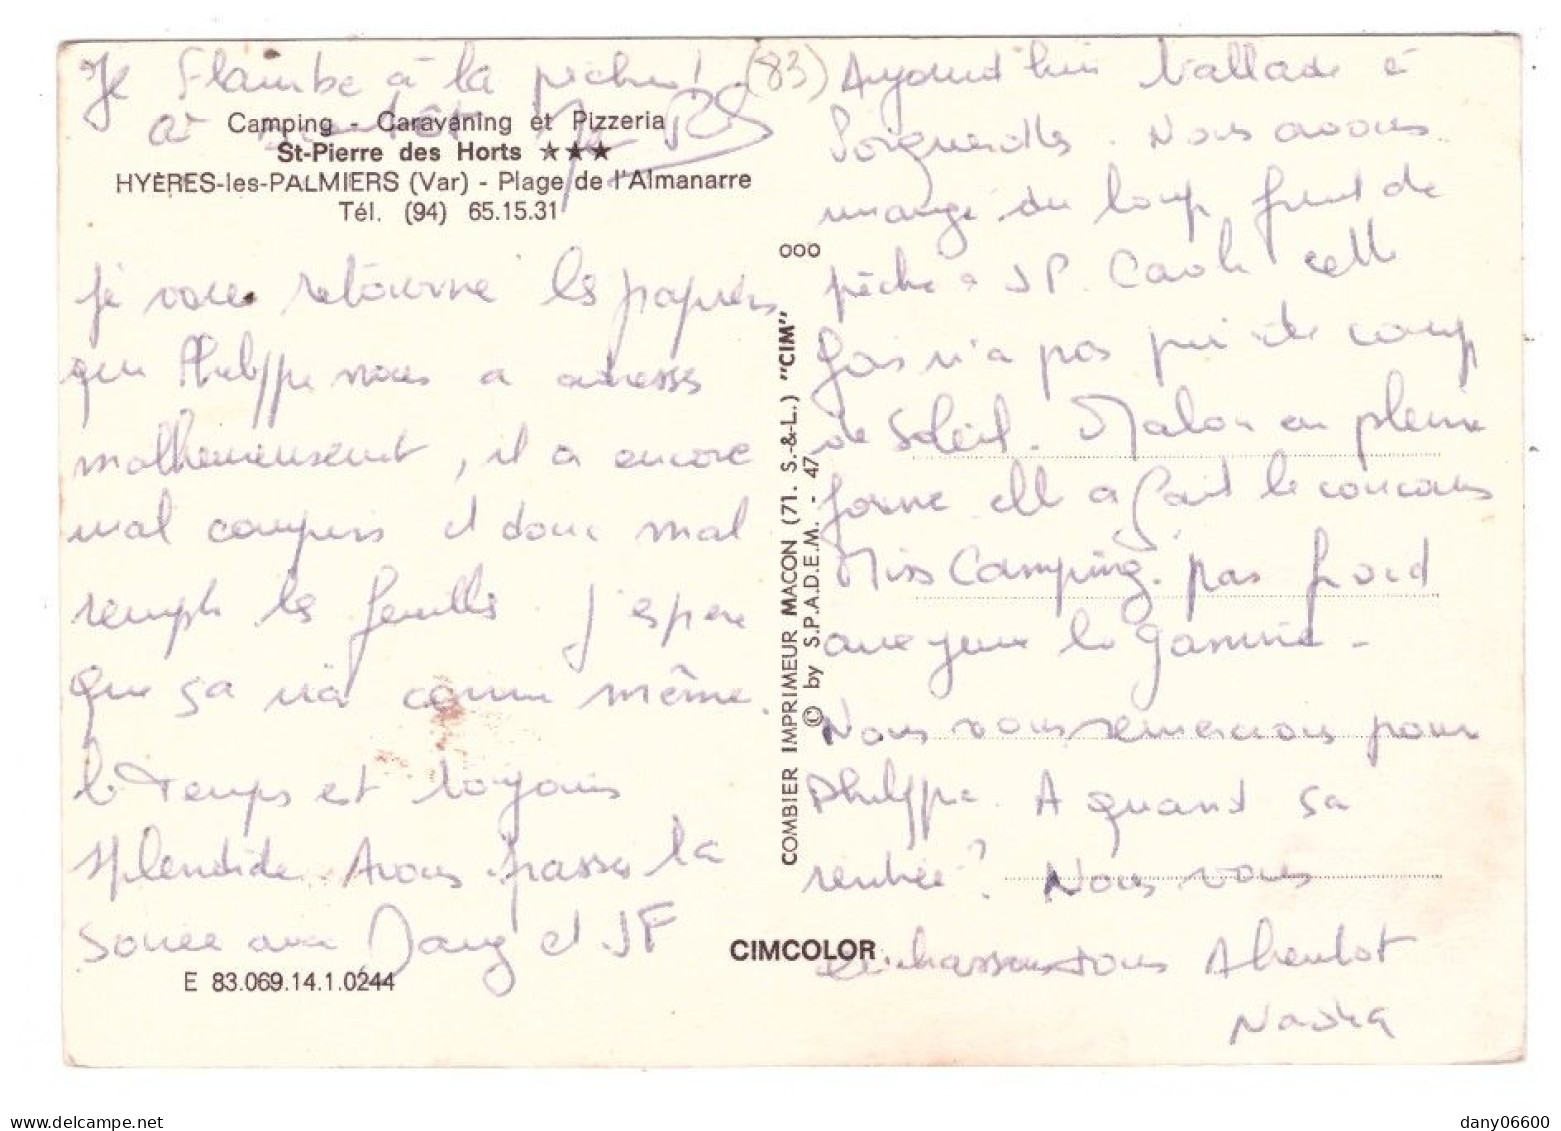 Je Flambe à la pêche !
à bientôt
(83)
Camping - Caravaning et Pizzeria
St-Pierre des Horts ★★★
HYÈRES-les-PALMIERS (Var) - Plage de l'Almanarre
Tél. (94) 65.15.31
je vous retourne les papiers
que Philippe nous a adressés
malheureusement, il a encore
mal compris et donc mal
rempli les feuilles. J'espère
que sa ira comme même.
le Temps est toujours
splendide. Avons passés la
soirée avec Dany et JF
E 83.069.14.1.0244
COMBIER IMPRIMEUR MACON (71. S.-&-L.) "CIM"
© by S.P.A.D.E.M. - 47
CIMCOLOR
Aujourd'hui ballade à
Porquerolles. Nous avons
mangé du loup, fruit de
pêche à JP. Carole cette
fois n'a pas pris de coup
de Soleil. Malou en pleine
forme elle a fait le concours
Miss Camping. pas froid
aux yeux la Gamine -
Nous vous remercions pour
Philippe. A quand sa
rentrée ? Nous vous
embrassons tous A bientot